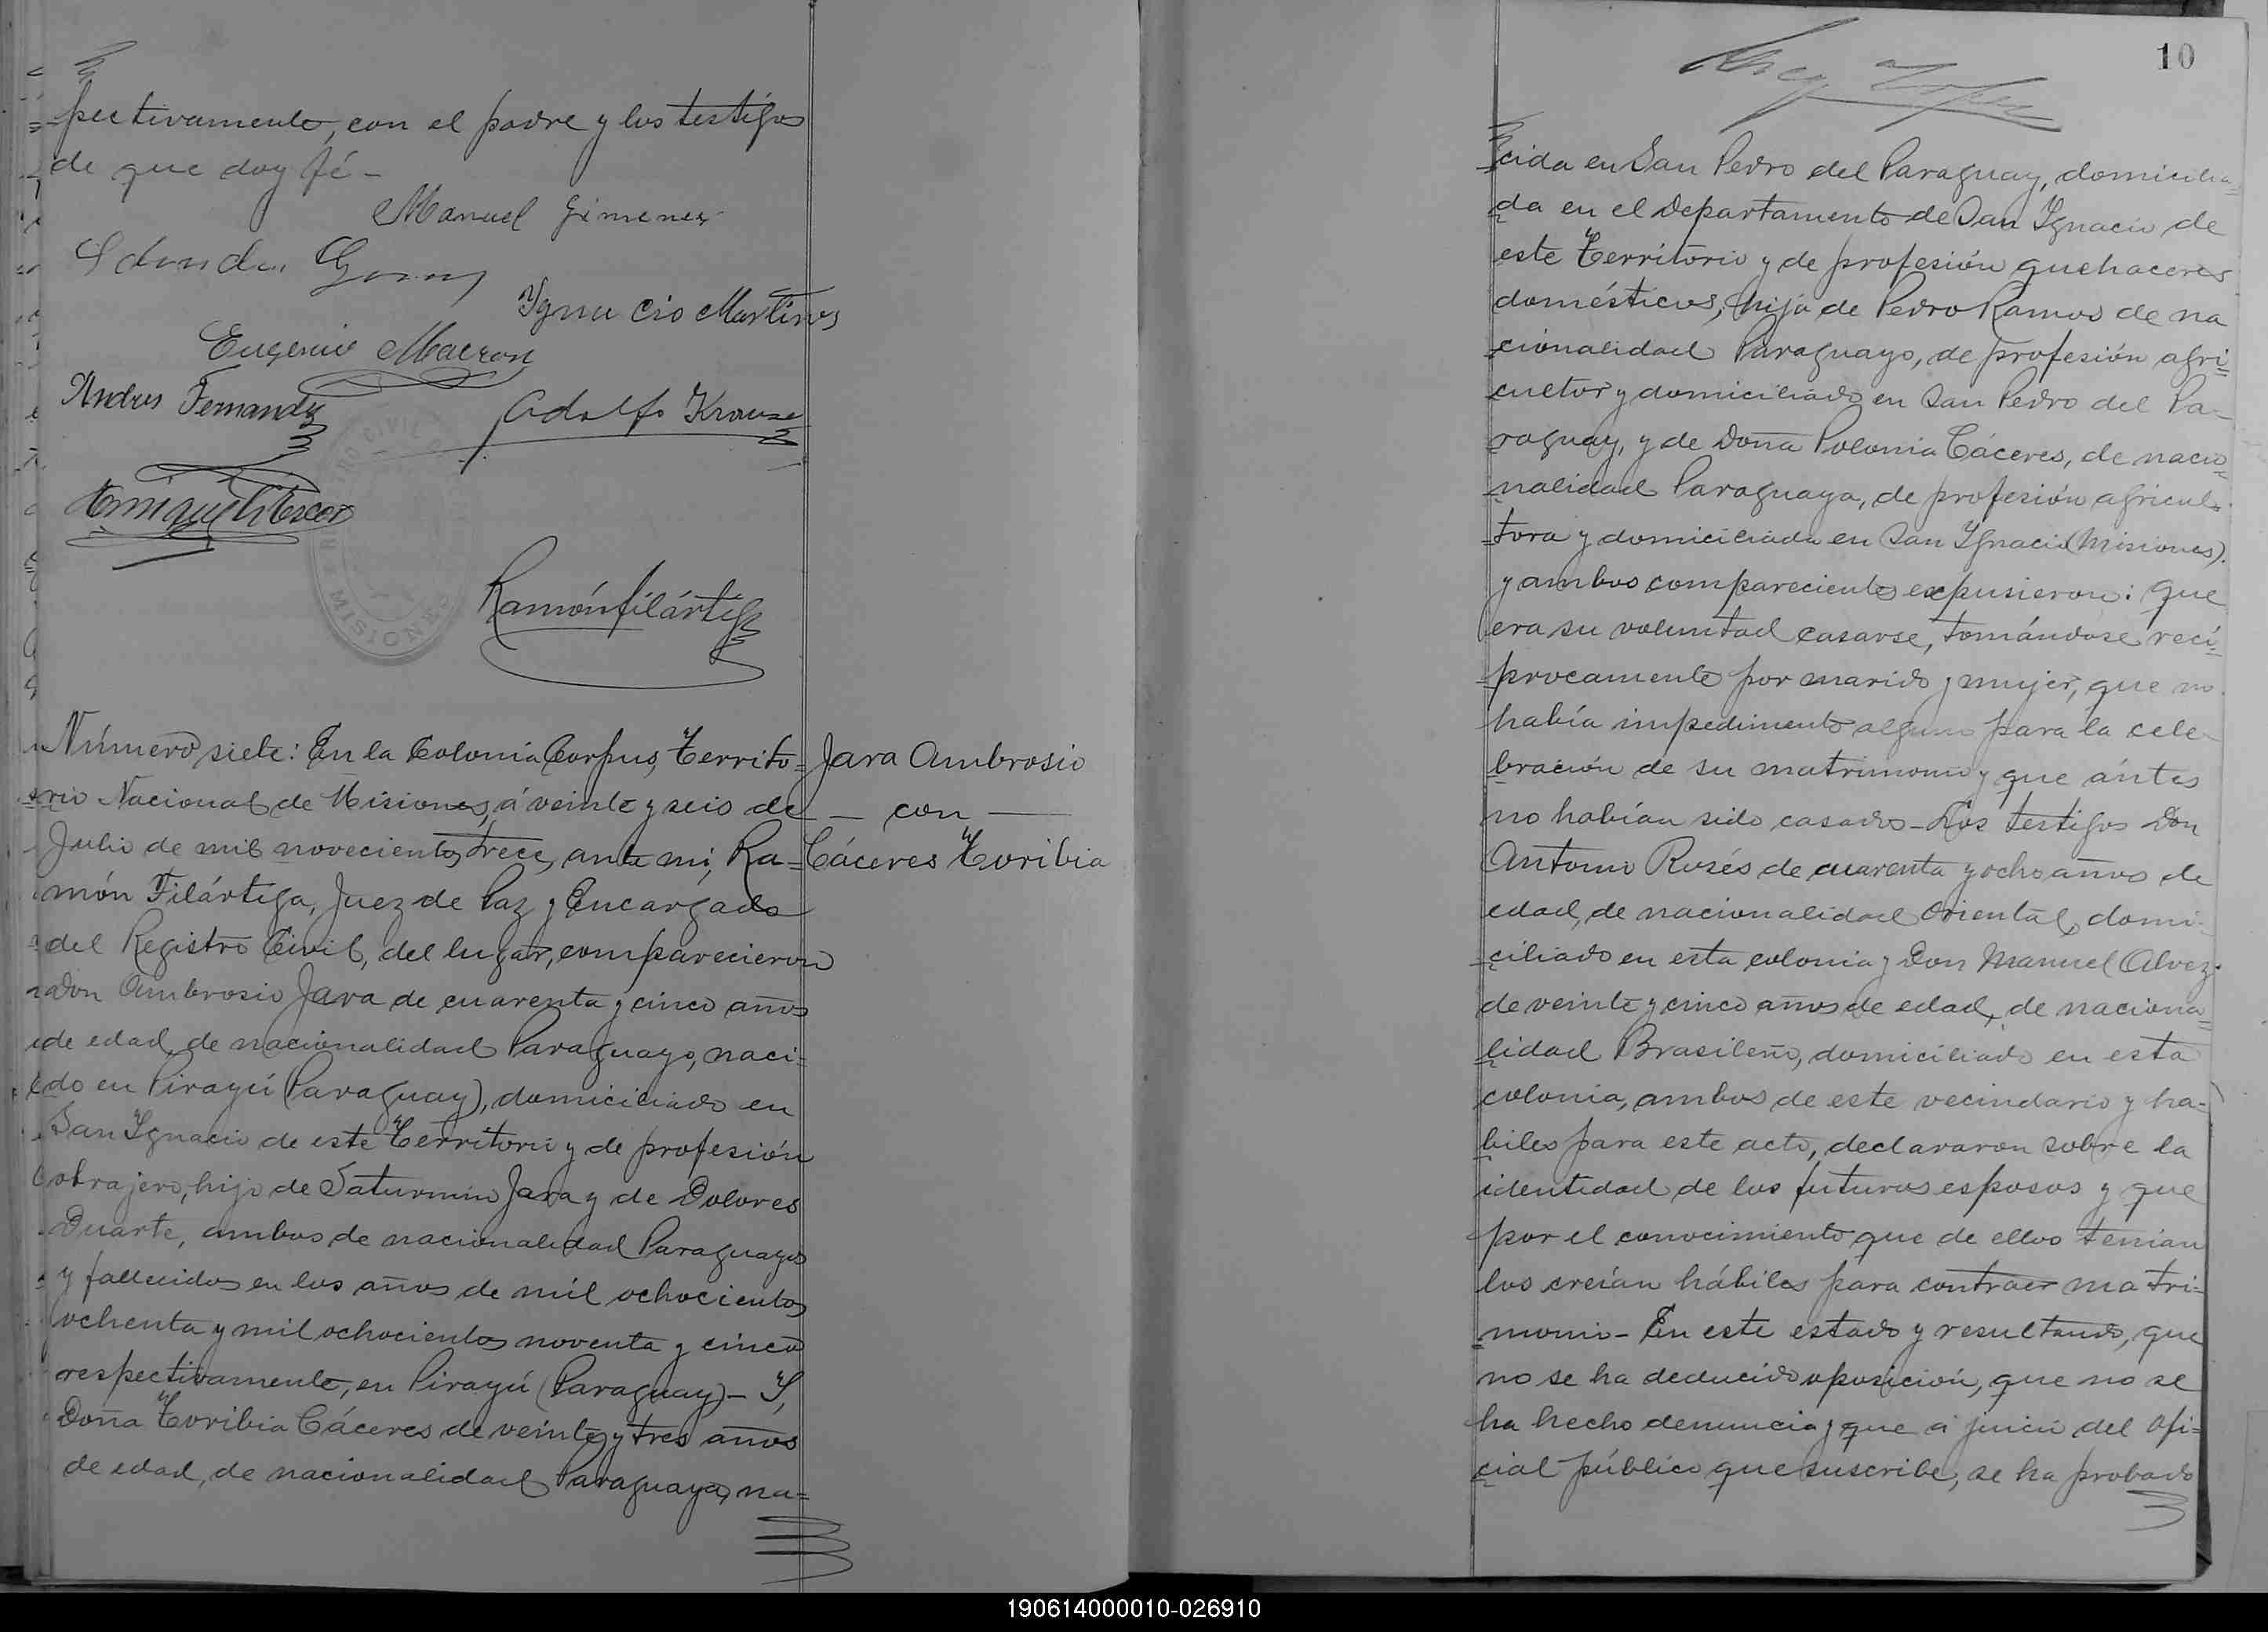 pectivamente, con el padre y los testigos
de que doy fé -
Manuel Gimenez
Ignacio Martines
Eugenio
Andres Fernandez
Adolfo Krause
REGISTRO CIVIL
MISIONES
Ramón Filártiga
Número siete: En la Colonia Corpus, Territo=
rio Nacional de Misiones, á veinte y seis de
Julio de mil novecientos trece, ante mi, Ra=
món Filártiga, Juez de Paz y Encargado
del Registro Civil, del lugar, comparecieron
Don Ambrosio Jara de cuarenta y cinco años
de edad, de nacionalidad Paraguayo, naci=
do en Pirayú (Paraguay), domiciliado en
San Ignacio de este Territorio y de profesión
obrajero, hijo de Saturnino Jara y de Dolores
Duarte, ambos de nacionalidad Paraguayos
y fallecidos en los años de mil ochocientos
ochenta y mil ochocientos noventa y cinco
respectivamente, en Pirayú (Paraguay) - Y,
Doña Toribia Cáceres de veinte y tres años
de edad, de nacionalidad Paraguaya, na=
Jara Ambrosio
— con —
Cáceres Toribia
10
cida en San Pedro del Paraguay, domicilia=
da en el Departamento de San Ignacio de
este Territorio y de profesión quehaceres
domésticos, hija de Pedro Ramos de na
cionalidad Paraguayo, de profesión agri=
cultor y domiciliado en San Pedro del Pa-
raguay, y de Doña Polonia Cáceres, de nacio=
nalidad Paraguaya, de profesión agricul-
tora y domiciliada en San Ignacio (Misiones).
y ambos comparecientes expusieron: que
era su voluntad casarse, tomándose recí=
procamente por marido y mujer, que no
había impedimento alguno para la cele-
bración de su matrimonio y que ántes
no habían sido casados - Los testigos Don
Antonio Rosés de cuarenta y ocho años de
edad, de nacionalidad Oriental, domi-
ciliado en esta colonia y Don Manuel Alvez
de veinte y cinco años de edad, de naciona=
lidad Brasileño, domiciliado en esta
colonia, ambos de este vecindario y há=
biles para este acto, declararon sobre la
identidad de los futuros esposos y que
por el conocimiento que de ellos tenian
los creían hábiles para contraer matri=
monio - En este estado y resultando, que
no se ha deducido oposición, que no se
ha hecho denuncia y que á juicio del ofi=
cial público que suscribe, se ha probado
190614000010-026910